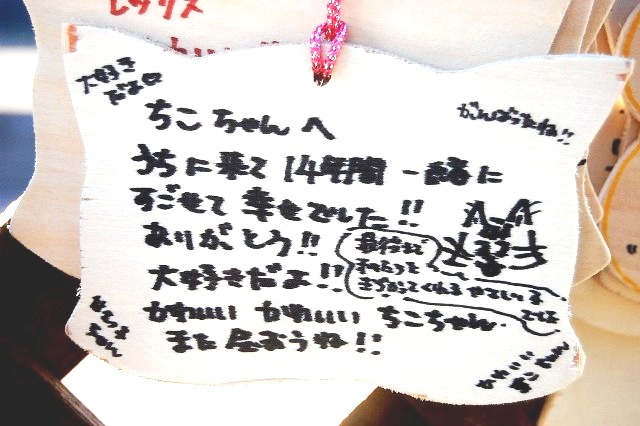 レックス
大好き
だよ
がんばったね!!
ちこちゃんへ
うちに来て 14年間 一緒に
すごせて 幸せでした!!
ありがとう!!
最後まで
大好きだよ!!
かわいい かわいい ちこちゃん
また会おうね!!